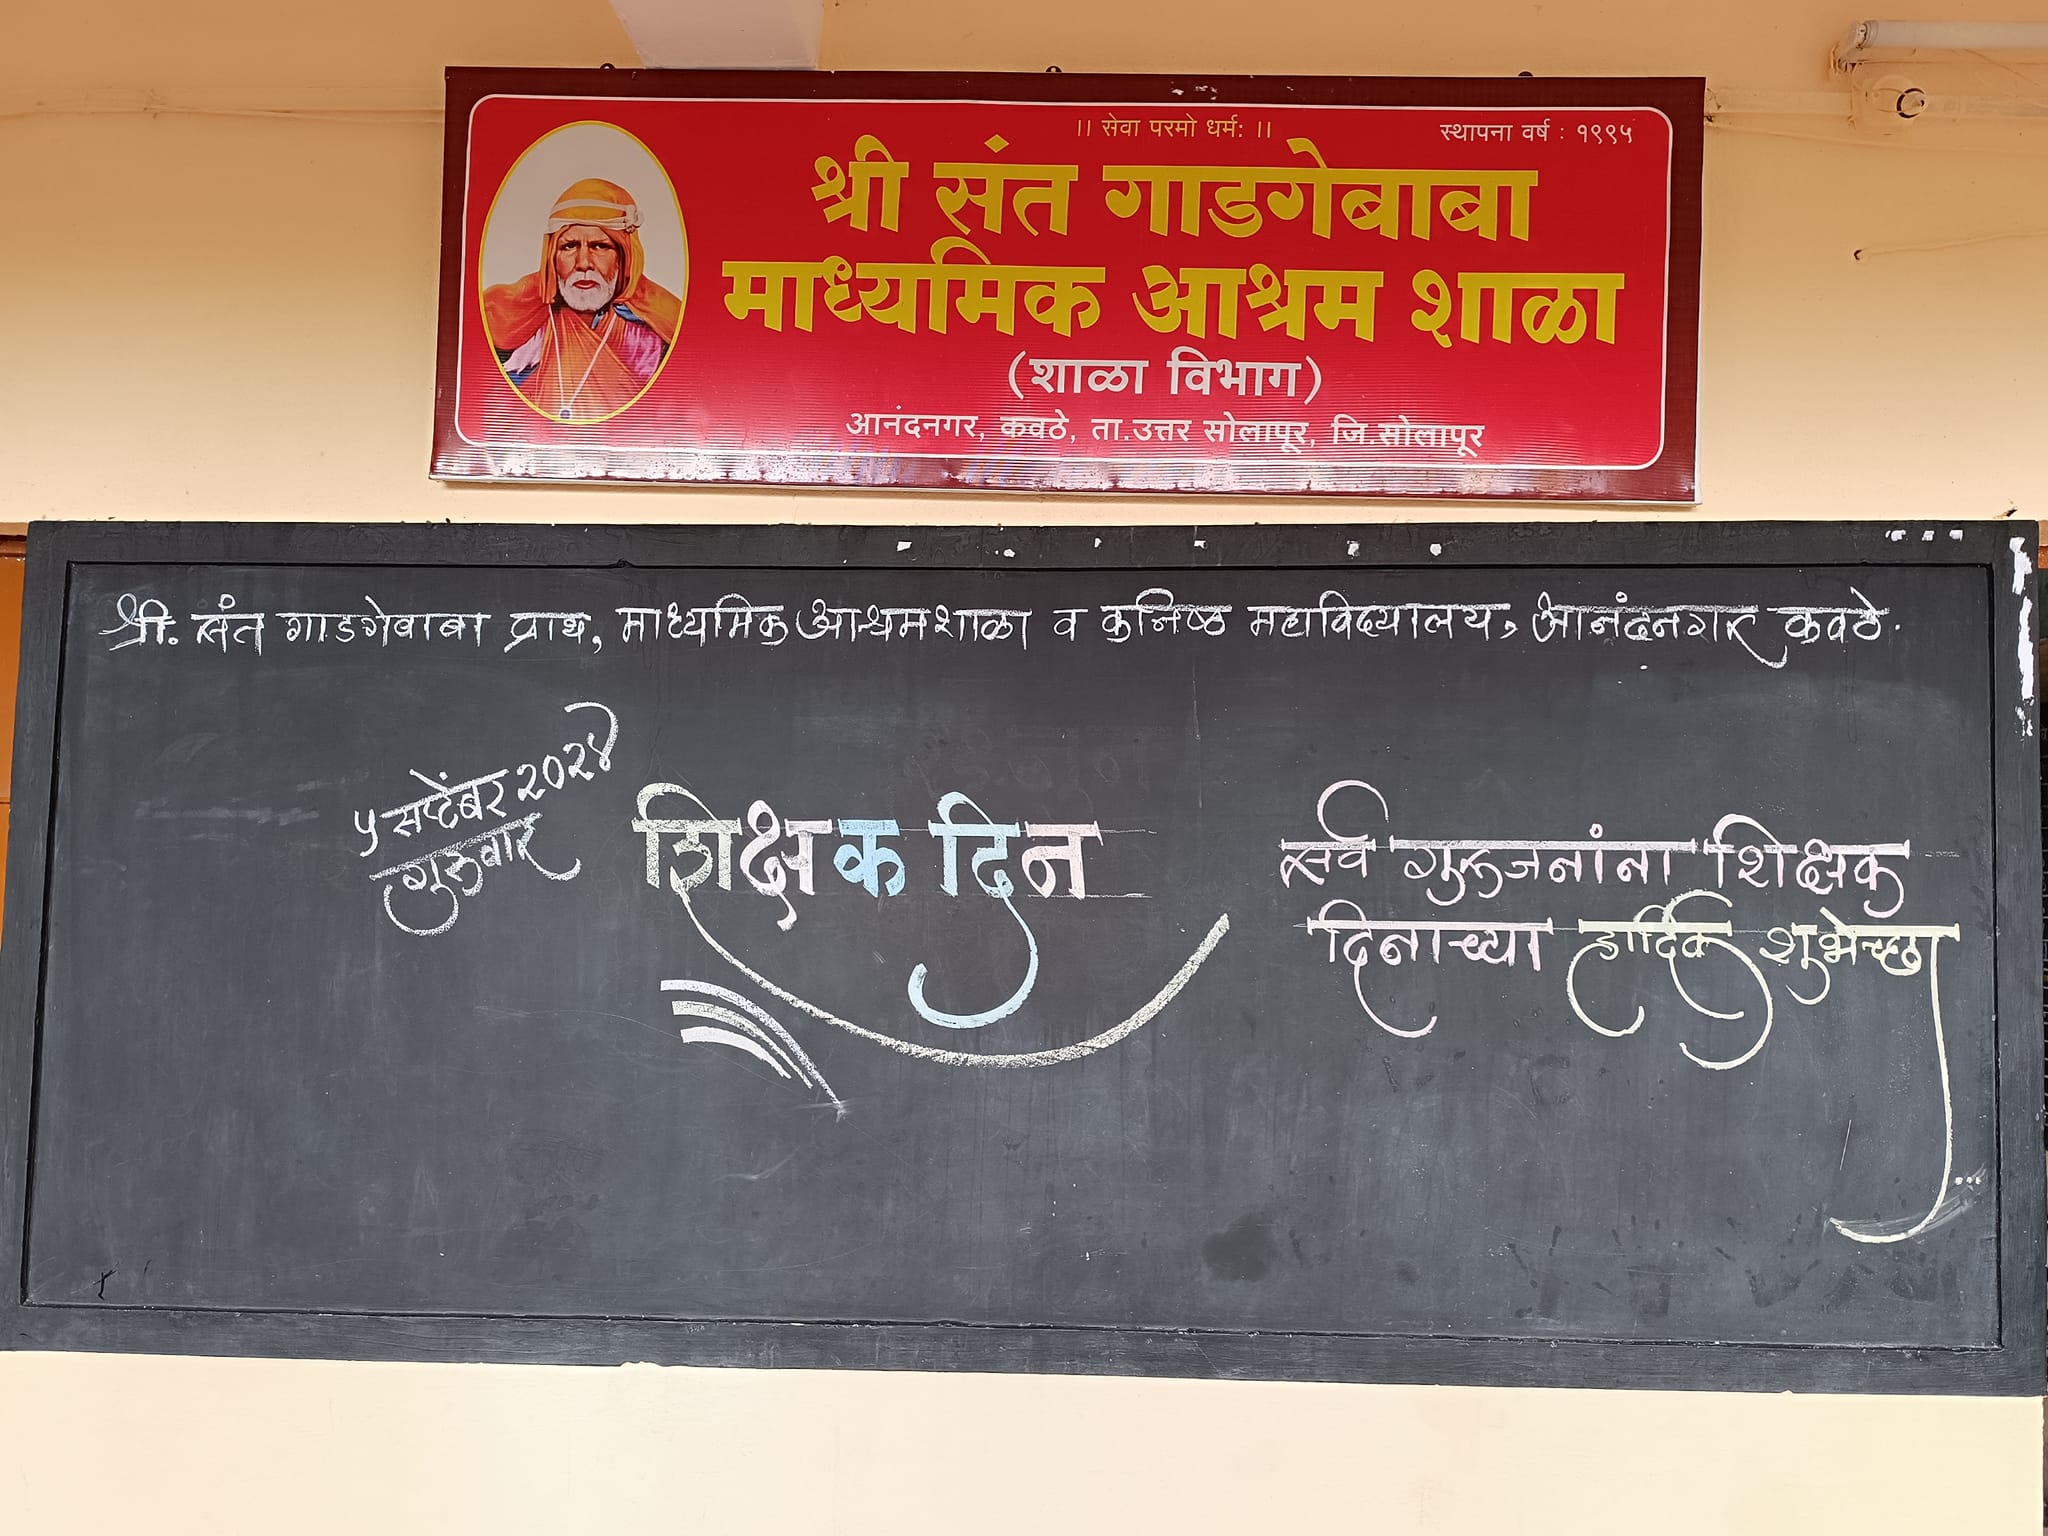 ।। सेवा परमो धर्म: ।।
स्थापना वर्ष : १९९५
श्री संत गाडगेबाबा
माध्यमिक आश्रम शाळा
(शाळा विभाग)
आनंदनगर, कवठे, ता.उत्तर सोलापूर, जि.सोलापूर
श्री. संत गाडगेबाबा प्राथ, माध्यमिक आश्रमशाळा व कनिष्ठ महाविद्यालय, आनंदनगर कवठे.
५ सप्टेंबर २०२४
गुरूवार
शिक्षक दिन
सर्व गुरूजनांना शिक्षक
दिनाच्या हार्दिक शुभेच्छा...